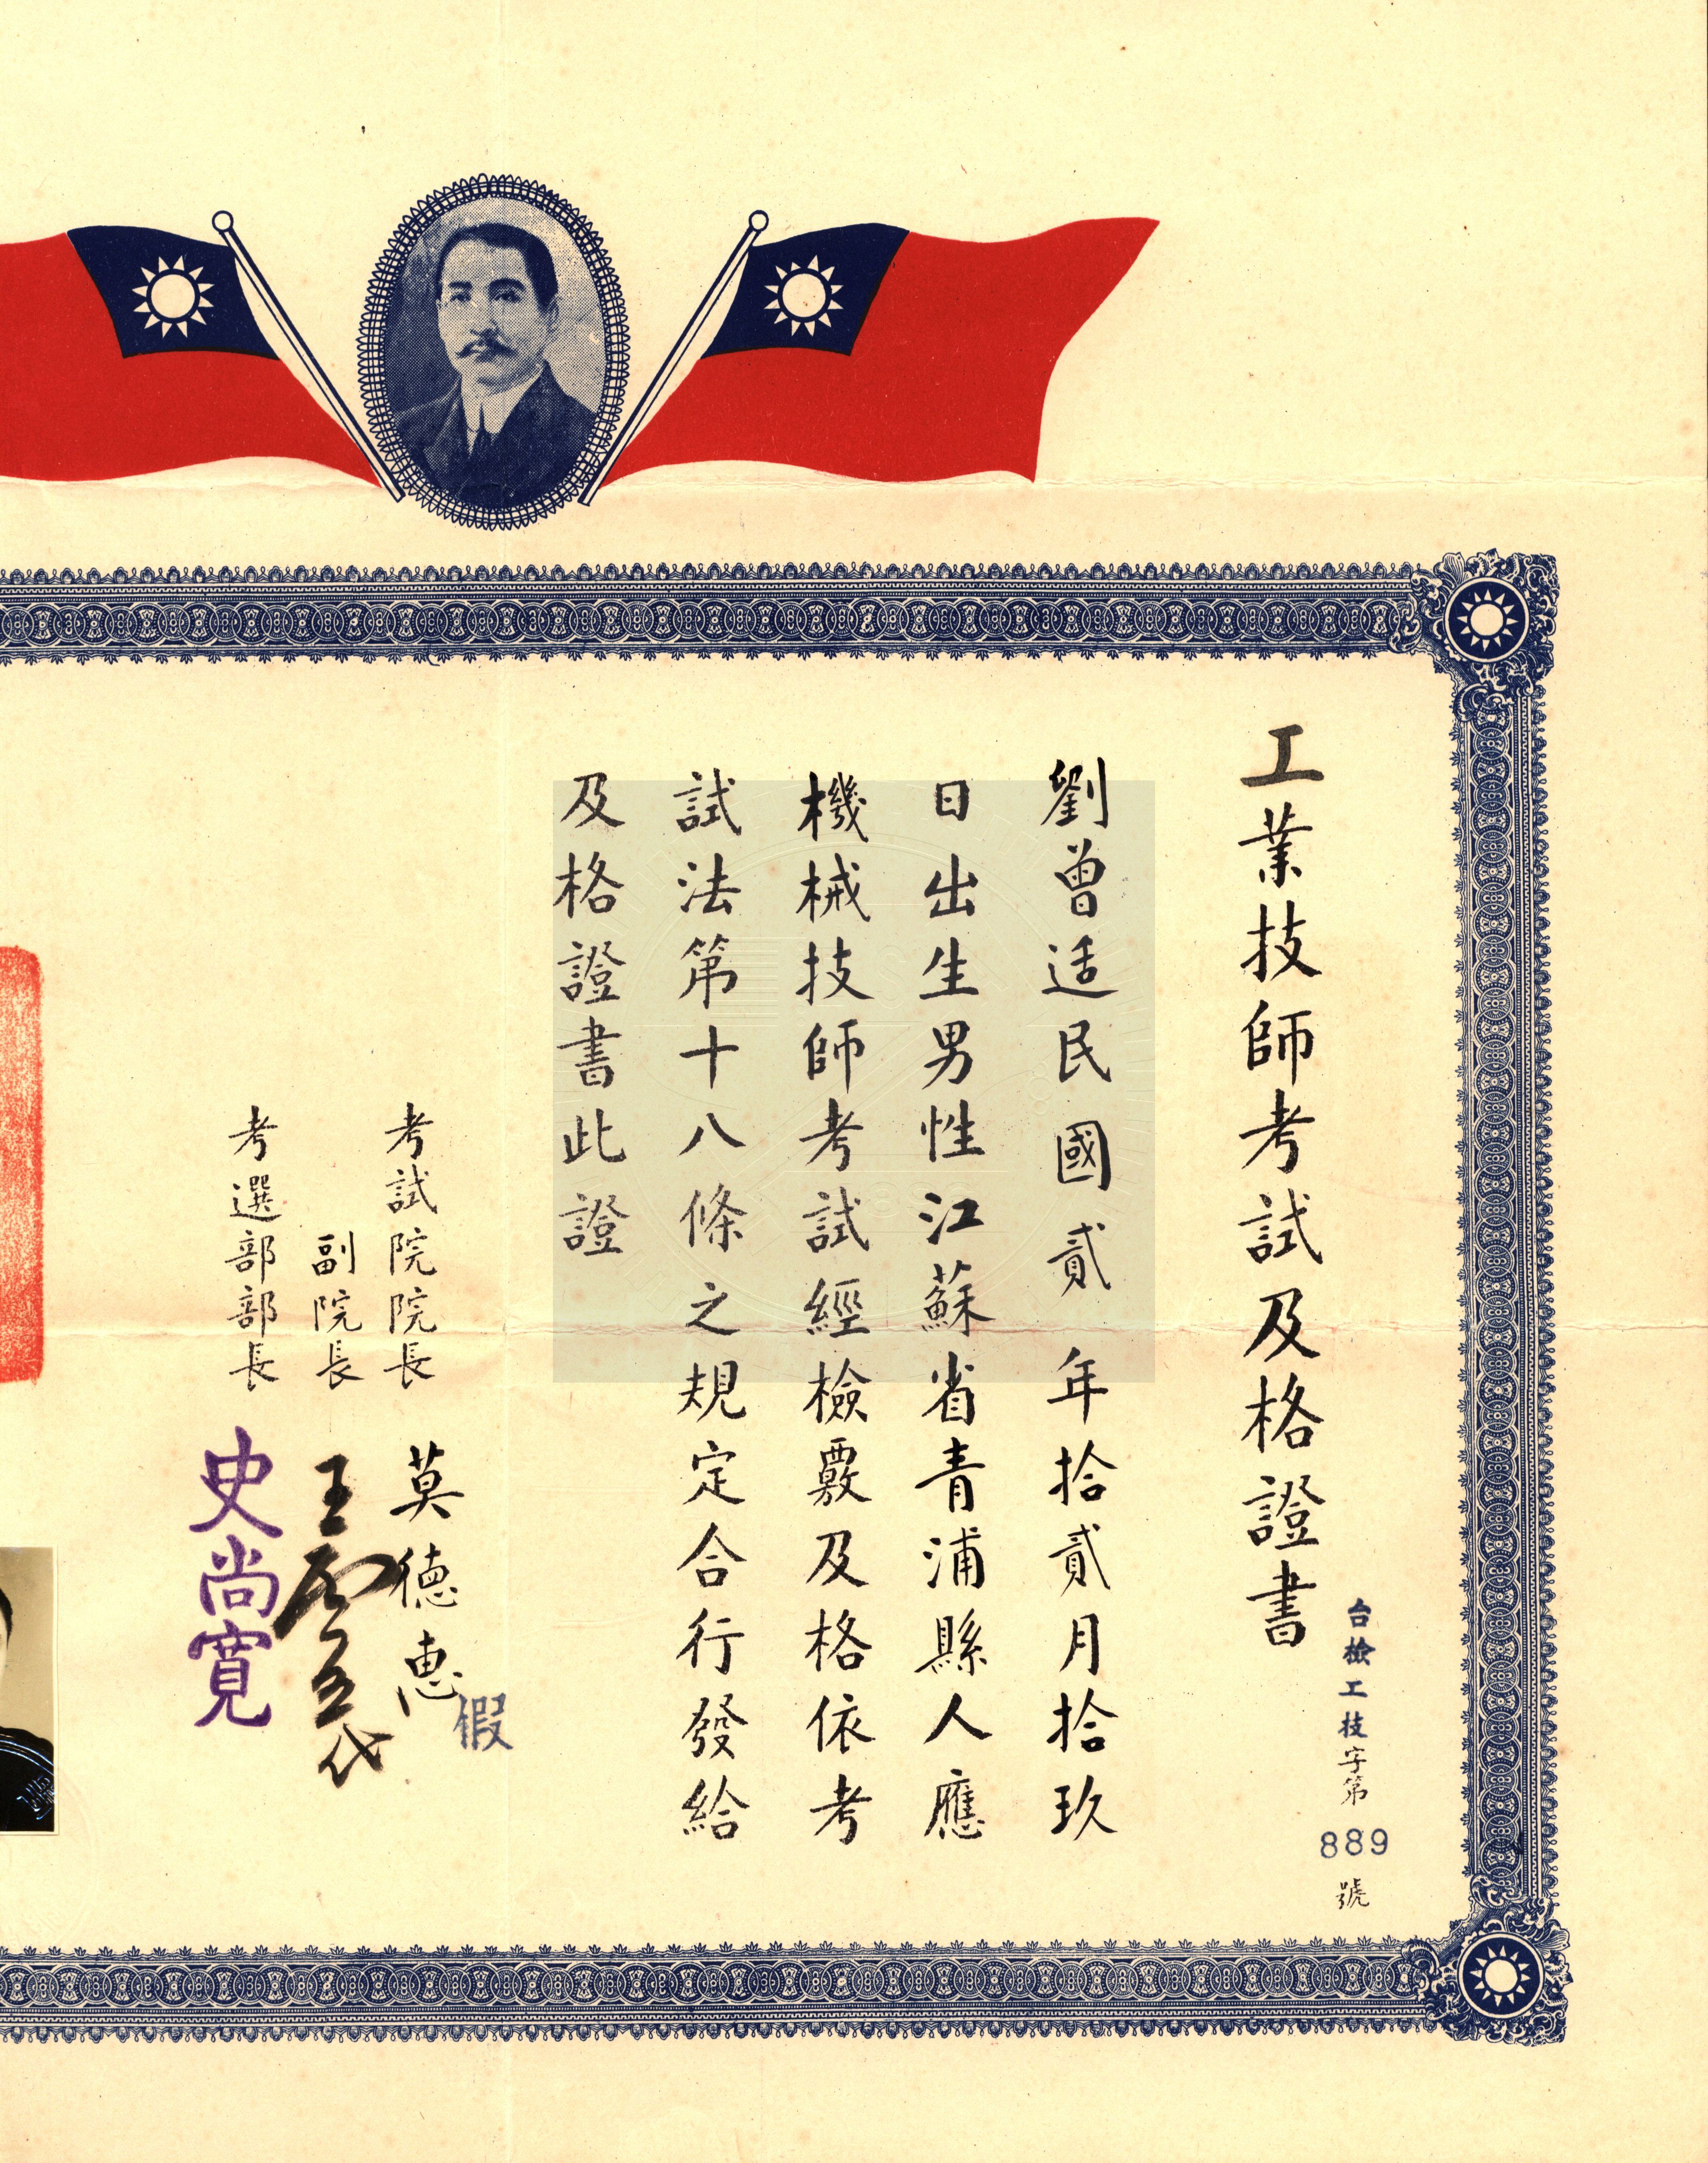 台檢工技字第889號
工業技師考試及格證書
劉曾适民國貳年拾貳月拾玖
日出生男性江蘇省青浦縣人應
機械技師考試經檢覈及格依考
試法第十八條之規定合行發給
及格證書此證
考試院院長 莫德惠 假
副院長 王雲五代
考選部部長 史尚寬